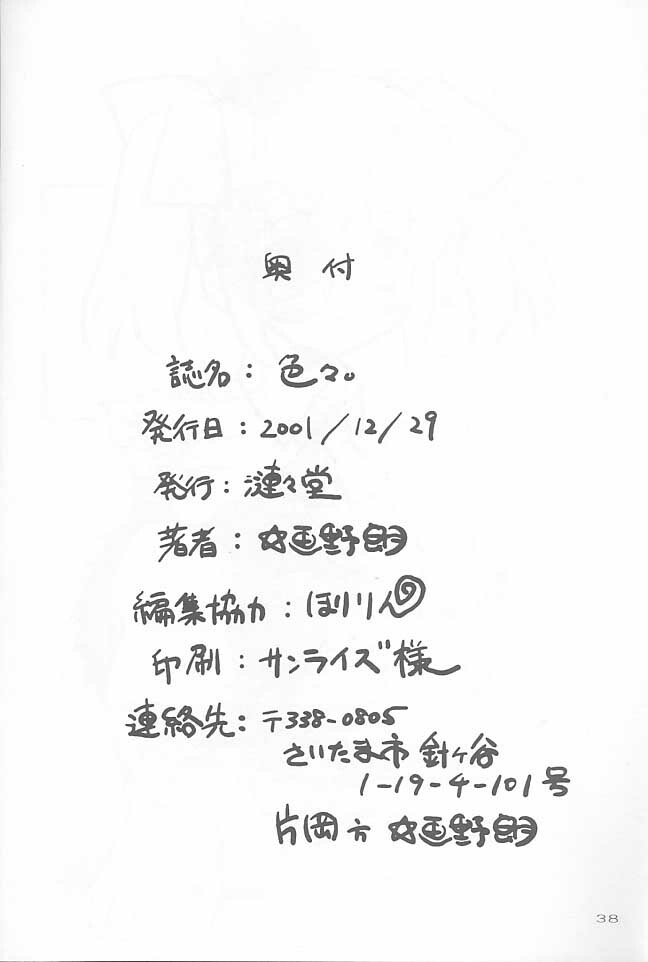 奥付
誌名:色々。
発行日:2001/12/29
発行:漣々堂
著者:☆画野朗
編集協力:ほりりん
印刷:サンライズ様
連絡先:〒338-0805
さいたま市針ヶ谷
1-19-4-101号
片岡方 ☆画野朗
38